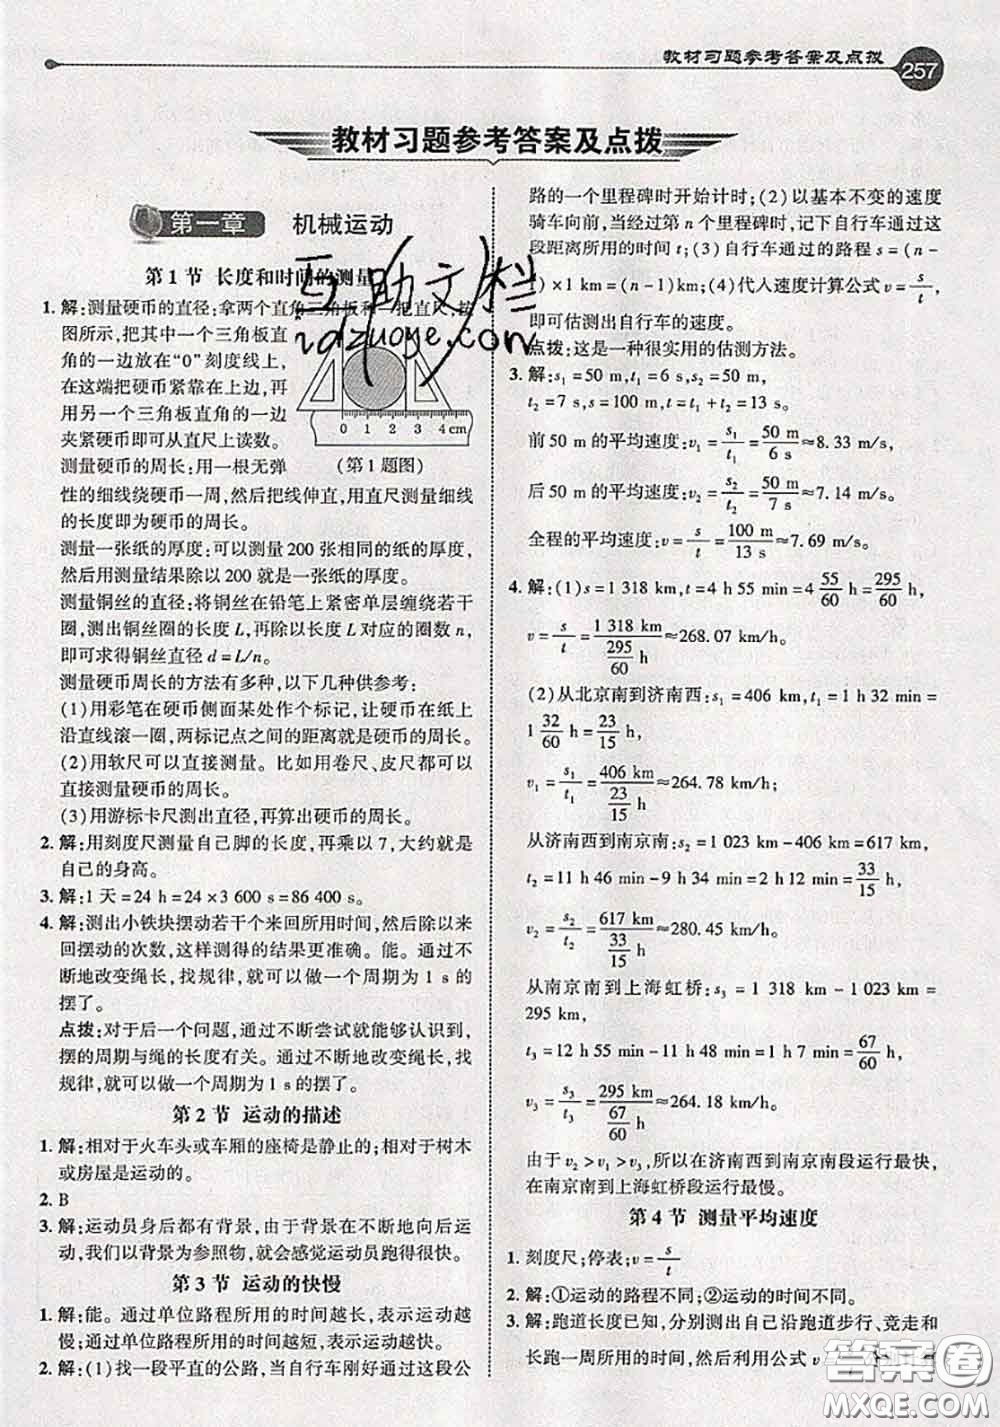 教材习题参考答案及点拨
257
教材习题参考答案及点拨
第一章 机械运动
第1节 长度和时间的测量
1. 解:测量硬币的直径:拿两个直角三角板和一把直尺,按
图所示,把其中一个三角板直
角的一边放在“0”刻度线上,
在这端把硬币紧靠在上边,再
用另一个三角板直角的一边
夹紧硬币即可从直尺上读数。
0 1 2 3 4cm
(第1题图)
测量硬币的周长:用一根无弹
性的细线绕硬币一周,然后把线伸直,用直尺测量细线
的长度即为硬币的周长。
测量一张纸的厚度:可以测量200张相同的纸的厚度,
然后将测量结果除以200就是一张纸的厚度。
测量铜丝的直径:将铜丝在铅笔上紧密单层缠绕若干
圈,测出铜丝圈的长度L,再除以长度L对应的圈数n,
即可求得铜丝直径d=L/n。
测量硬币周长的方法有多种,以下几种供参考:
(1)用彩笔在硬币侧面某处作个标记,让硬币在纸上
沿直线滚一圈,两标记点之间的距离就是硬币的周长。
(2)用软尺可以直接测量。比如用卷尺、皮尺都可以
直接测量硬币的周长。
(3)用游标卡尺测出直径,再算出硬币的周长。
2. 解:用刻度尺测量自己脚的长度,再乘以7,大约就是
自己的身高。
3. 解:1天=24 h=24×3 600 s=86 400 s。
4. 解:测出小铁块摆动若干个来回所用时间,然后除以来
回摆动的次数,这样测得的结果更准确。能。通过不
断地改变绳长,找规律,就可以做一个周期为1 s的
摆了。
点拨:对于后一个问题,通过不断尝试就能够认识到,
摆的周期与绳的长度有关。通过不断地改变绳长,找
规律,就可以做一个周期为1 s的摆了。
第2节 运动的描述
1. 解:相对于火车头或车厢的座椅是静止的;相对于树木
或房屋是运动的。
2. B
3. 解:运动员身后都有背景,由于背景不断地向后运
动,我们以背景为参照物,就会感觉运动员跑得很快。
第3节 运动的快慢
1. 解:能。通过单位路程所用的时间越长,表示运动越
慢;通过单位路程所用的时间越短,表示运动越快。
2. 解:(1)找一段平直的公路,当自行车刚好通过这段公
路的一个里程碑时开始计时;(2)以基本不变的速度
骑车向前,当经过第n个里程碑时,记下自行车通过这
段距离所用的时间t;(3)自行车通过的路程s=(n-
1)×1 km=(n-1)km;(4)代入速度计算公式v=s/t,
即可估测出自行车的速度。
点拨:这是一种很实用的估测方法。
3. 解:s₁=50 m,t₁=6 s,s₂=50 m,
t₂=7 s,s=100 m,t=t₁+t₂=13 s。
前50 m的平均速度:v₁=s₁/t₁=50 m/6 s≈8.33 m/s,
后50 m的平均速度:v₂=s₂/t₂=50 m/7 s≈7.14 m/s,
全程的平均速度:v=s/t=100 m/13 s≈7.69 m/s。
4. 解:(1)s=1 318 km,t=4 h 55 min=4 55/60 h=295/60 h,
v=s/t=1 318 km/(295/60 h)≈268.07 km/h。
(2)从北京南到济南西:s₁=406 km,t₁=1 h 32 min=
1 32/60 h=23/15 h,
v₁=s₁/t₁=406 km/(23/15 h)≈264.78 km/h。
从济南西到南京南:s₂=1 023 km-406 km=617 km,
t₂=11 h 46 min-9 h 34 min=2 h 12 min=33/15 h,
v₂=s₂/t₂=617 km/(33/15 h)≈280.45 km/h。
从南京南到上海虹桥:s₃=1 318 km-1 023 km=
295 km,
t₃=12 h 55 min-11 h 48 min=1 h 7 min=67/60 h,
v₃=s₃/t₃=295 km/(67/60 h)≈264.18 km/h。
由于v₂>v₁>v₃,所以在济南西到南京南段运行最快,
在南京南到上海虹桥段运行最慢。
第4节 测量平均速度
1. 刻度尺;停表;v=s/t
2. 解:①运动的路程不同;②运动的时间不同。
3. 解:跑道长度已知,分别测出自己沿跑道步行、竞走和
长跑一周所用的时间,然后利用公式v
互助文档
idzuoye.com
答案圈
MXQE.COM